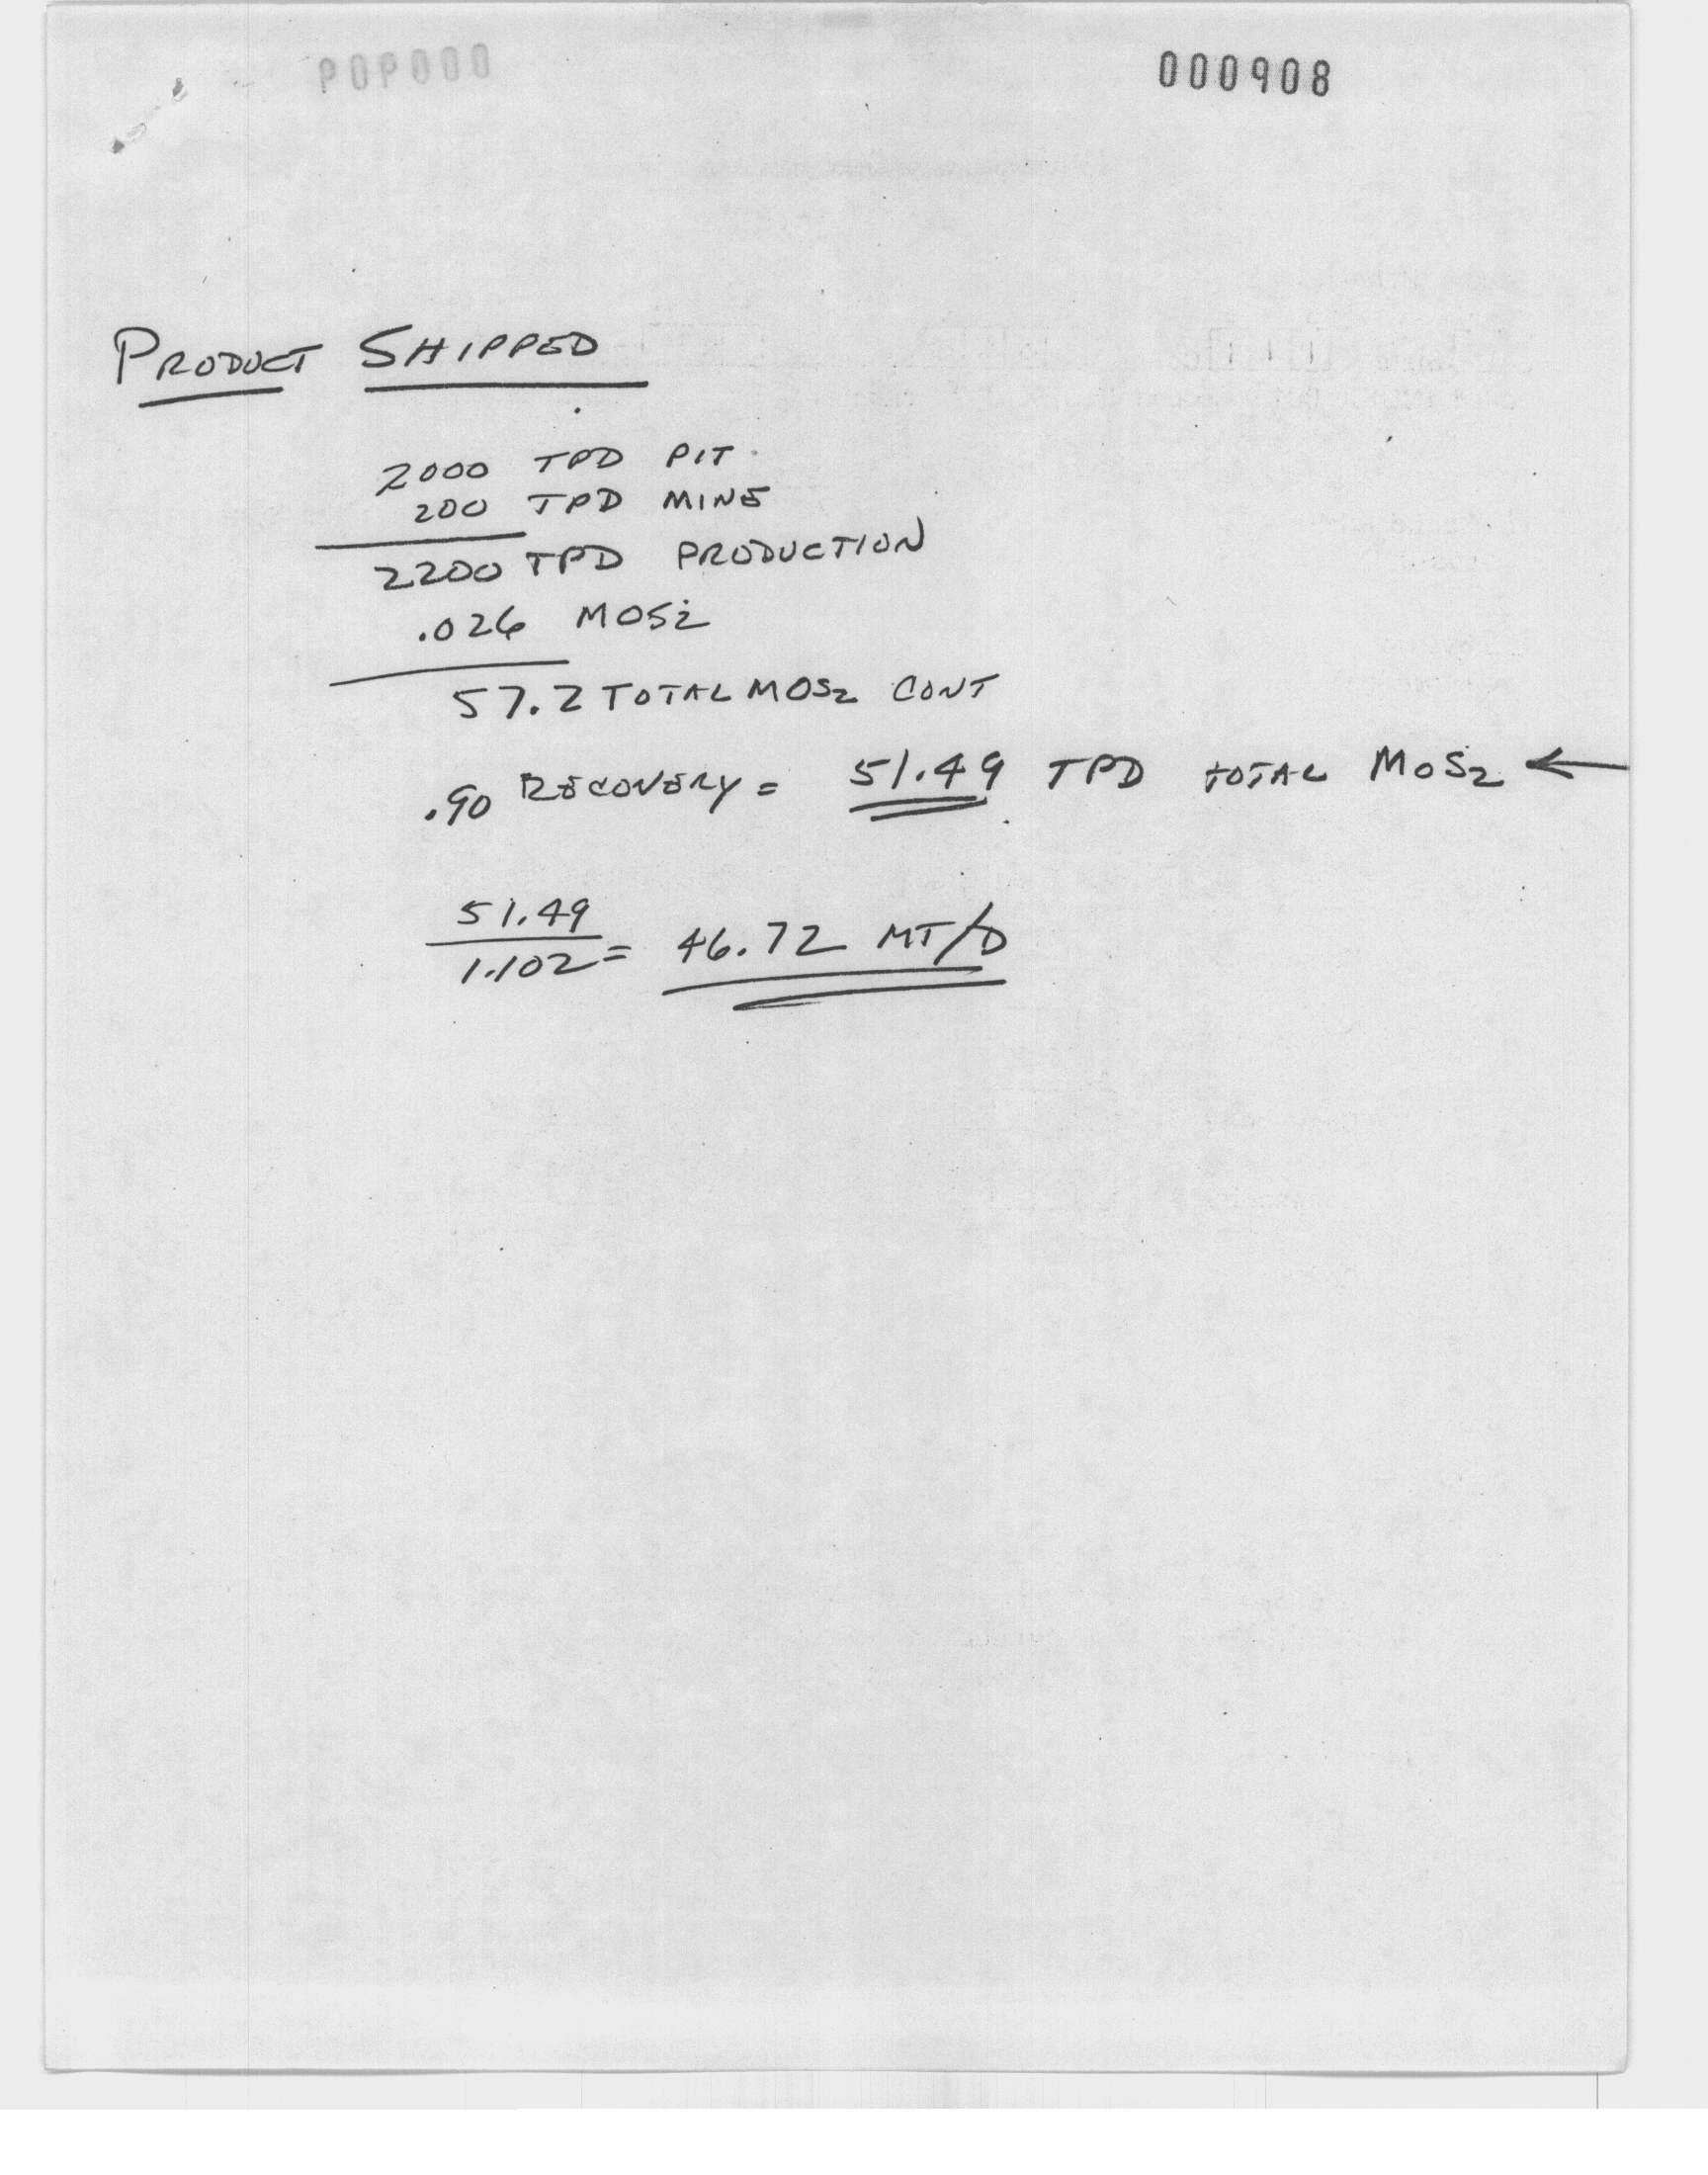 000908
PRODUCT SHIPPED
2000 TPD PIT
200 TPD MINE
2200 TPD PRODUCTION
.026 MOS2
57.2 TOTAL MOS2 CONT
.90 RECOVERY = 51.49 TPD TOTAL MOS2 ←
51.49
1.102 = 46.72 MT/D